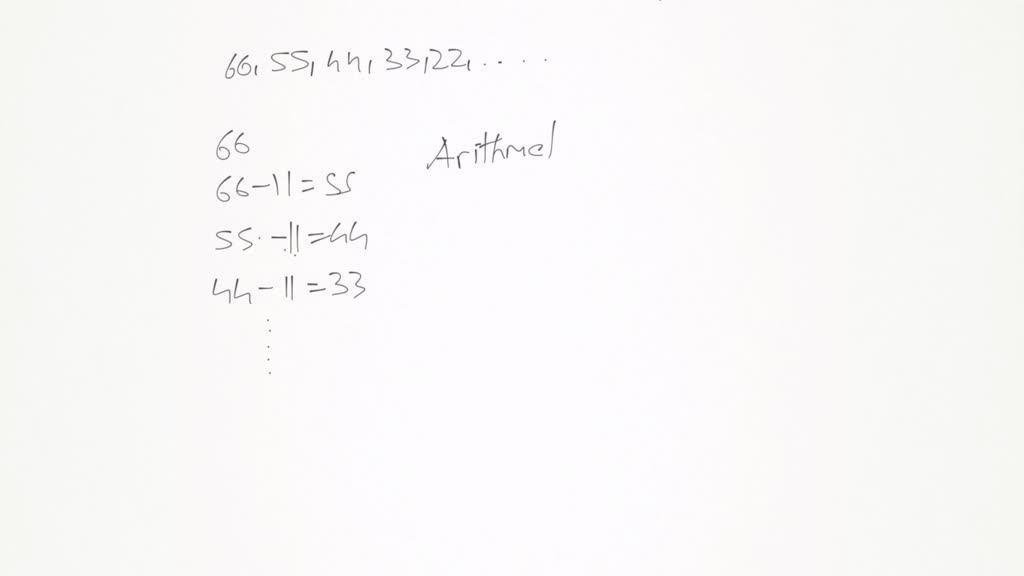 66, 55, 44, 33, 22, .....
66
Arithmel
66-11=55
55-11=44
44-11=33
.....